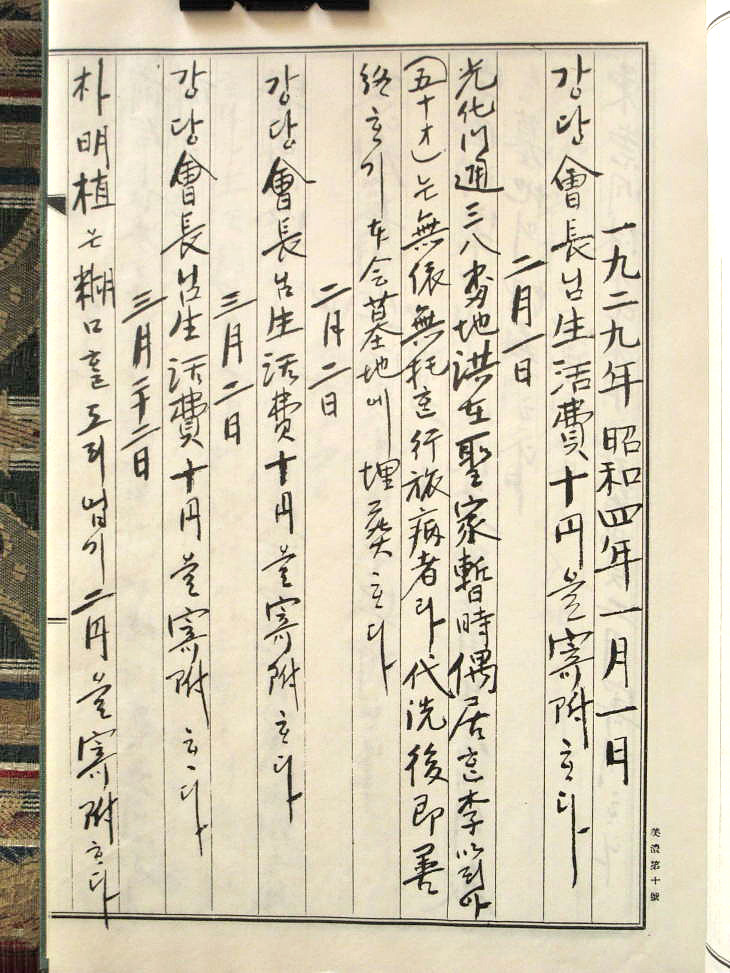 一九二九年 昭和四年 一月 一日
강당 會長님 生活費 十円을 寄附 ᄒᆞ다
二月 一日
光化門通 三八 番地 洪在聖家 暫時 偶居ᄒᆞᆫ 李
(五十才)는 無依無托ᄒᆞᆫ 行旅病者라 代洗後 即 善
終ᄒᆞ기 本会墓地에 埋葬 ᄒᆞ다
二月 二日
강당 會長님 生活費 十円을 寄附 ᄒᆞ다
三月 二日
강당 會長님 生活費 十円을 寄附 ᄒᆞ다
三月 二十二日
朴明植은 糊口홀 도리 업기 二円을 寄附 ᄒᆞ다
美濃第十號